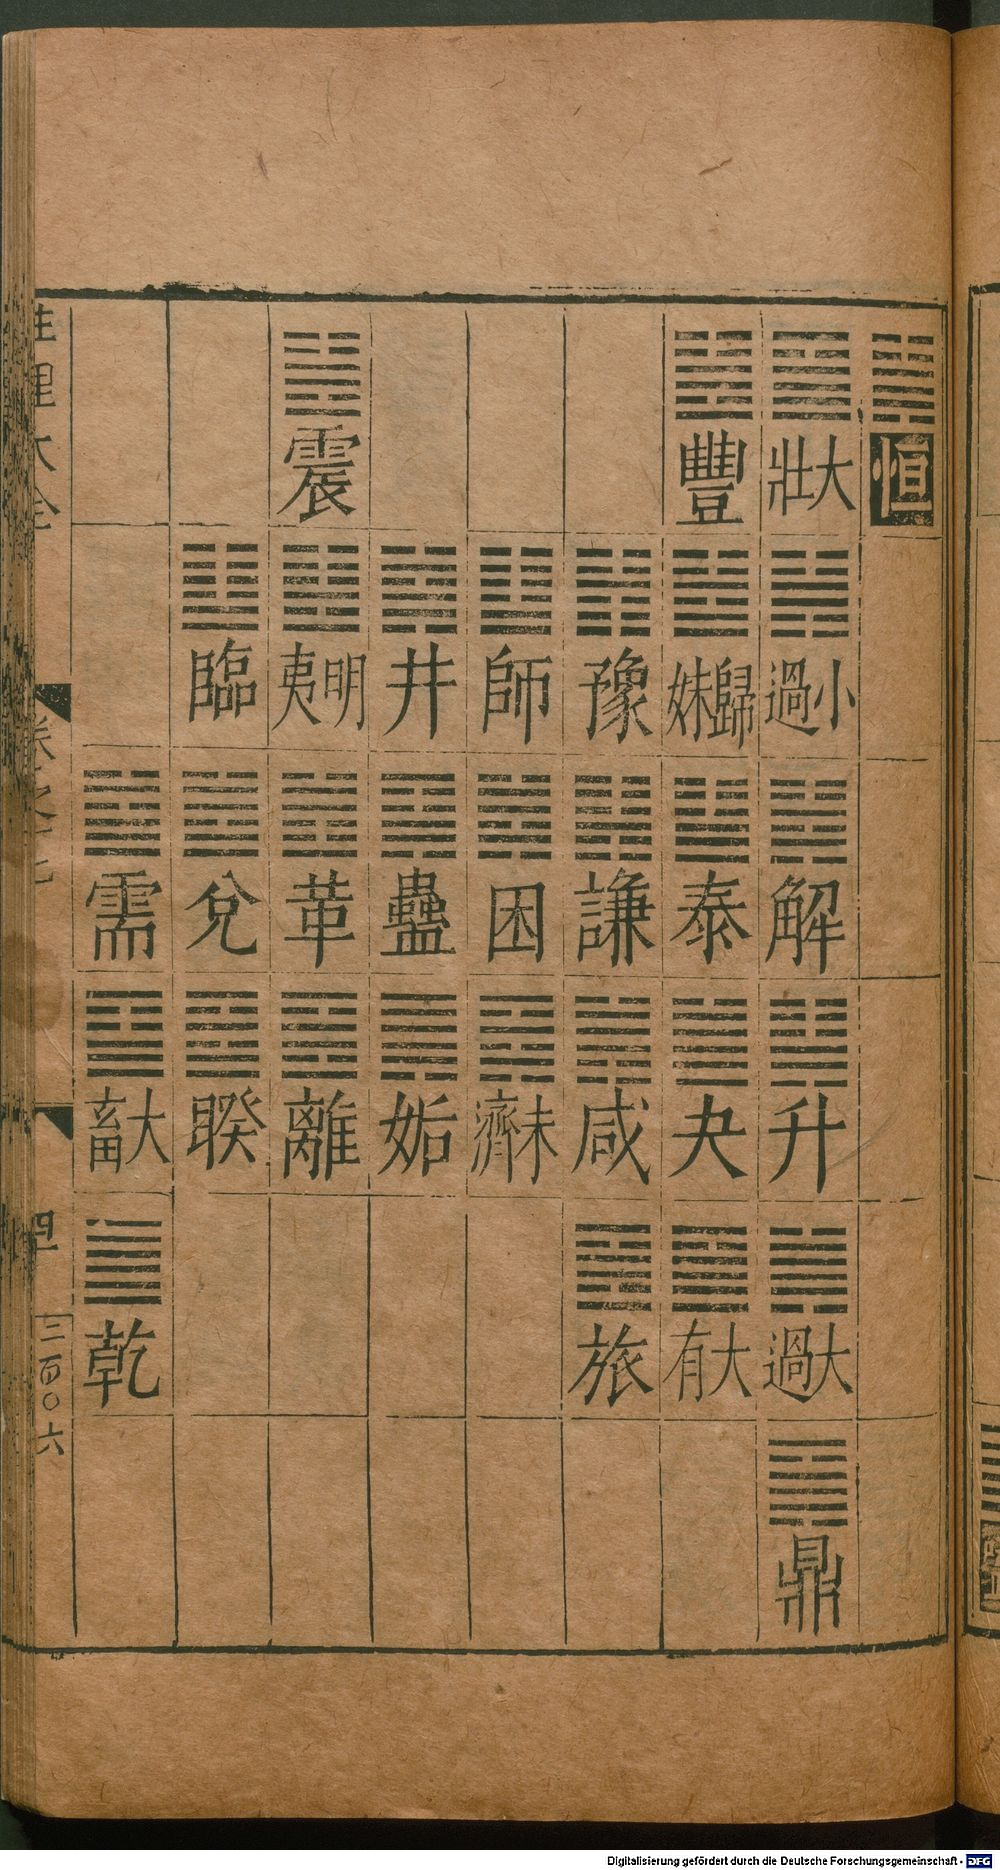 恒
大壯
小過
解
升
大過
鼎
豐
歸妹
泰
夬
大有
豫
謙
咸
旅
師
困
未濟
井
蠱
姤
震
明夷
革
離
臨
兌
聧
需
大畜
乾
性理大全
卷之
二百〇六
Digitalisierung gefördert durch die Deutsche Forschungsgemeinschaft - DFG